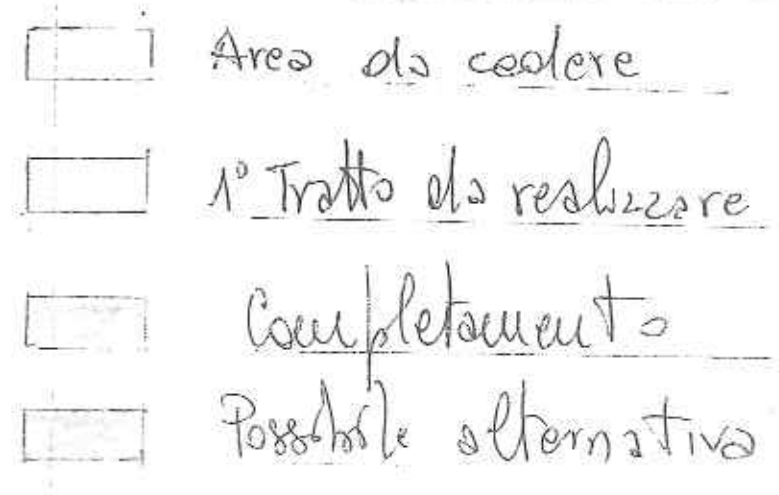 Area da cedere
1° Tratto da realizzare
Completamento
Possibile alternativa